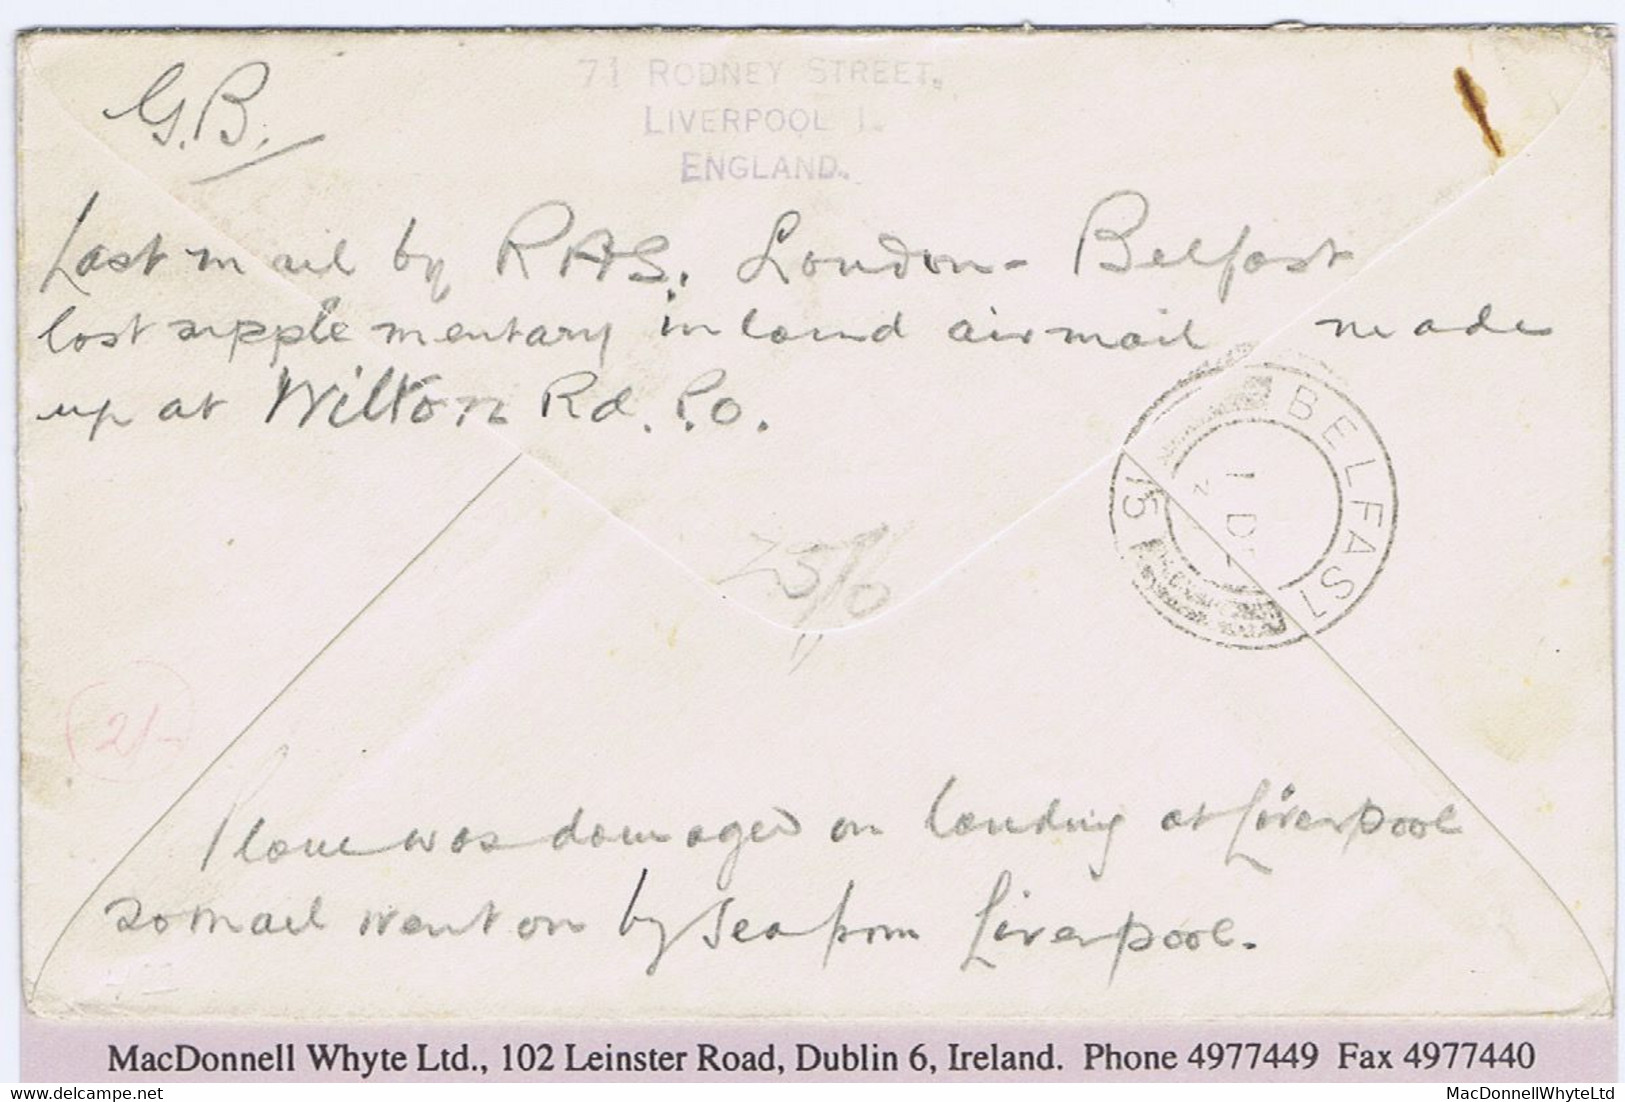 G.B.
71 RODNEY STREET.
LIVERPOOL 1.
ENGLAND.
Last mail by RAS. London - Belfast
lost supplementary inland airmail made
up at Wilton Rd. P.O.
BELFAST
1 D
15
25/0
2/-
Plane was damaged on landing at Liverpool
so mail went on by sea from Liverpool.
MacDonnell Whyte Ltd., 102 Leinster Road, Dublin 6, Ireland. Phone 4977449 Fax 4977440
MacDonnellWhyteLtd